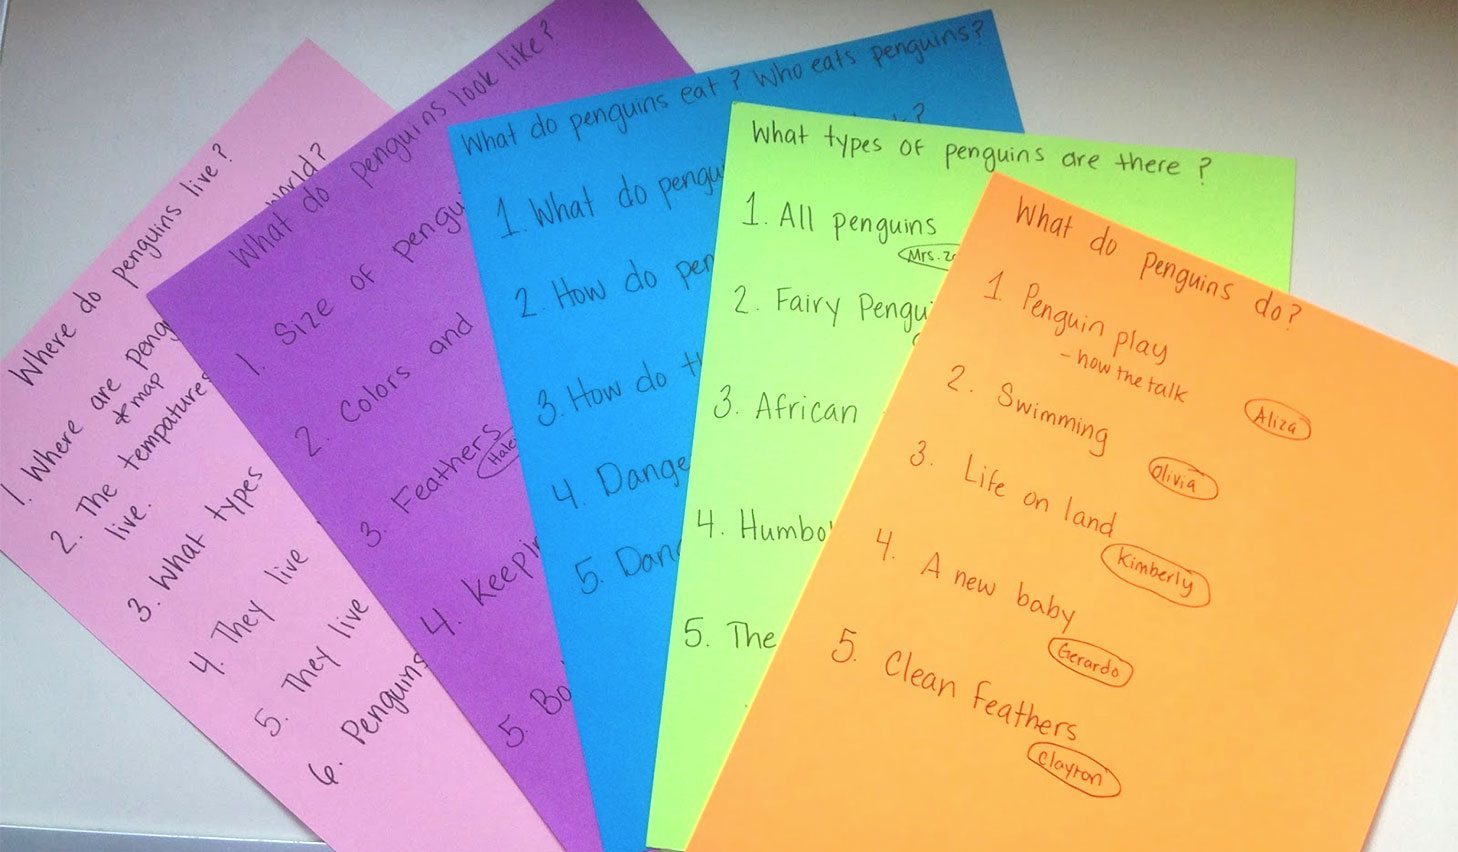 Where do penguins live?
world?
1. Where are
* map
2. The tempatures
live.
3. What types
4. They live
5. They live
6. Penguins
What do penguins look like?
1. Size of
2. Colors and
3. Feathers
4.
5.
What do penguins eat? Who eats penguins?
1. What do
2. How do
3. How do
4.
5.
What types of penguins are there?
1. All penguins
Mrs.
2. Fairy
3. African
4.
5. The
What do penguins do?
1. Penguin play
- how the talk
Aliza
2. Swimming
Olivia
3. Life on land
Kimberly
4. A new baby
Gerardo
5. Clean feathers
Clayton